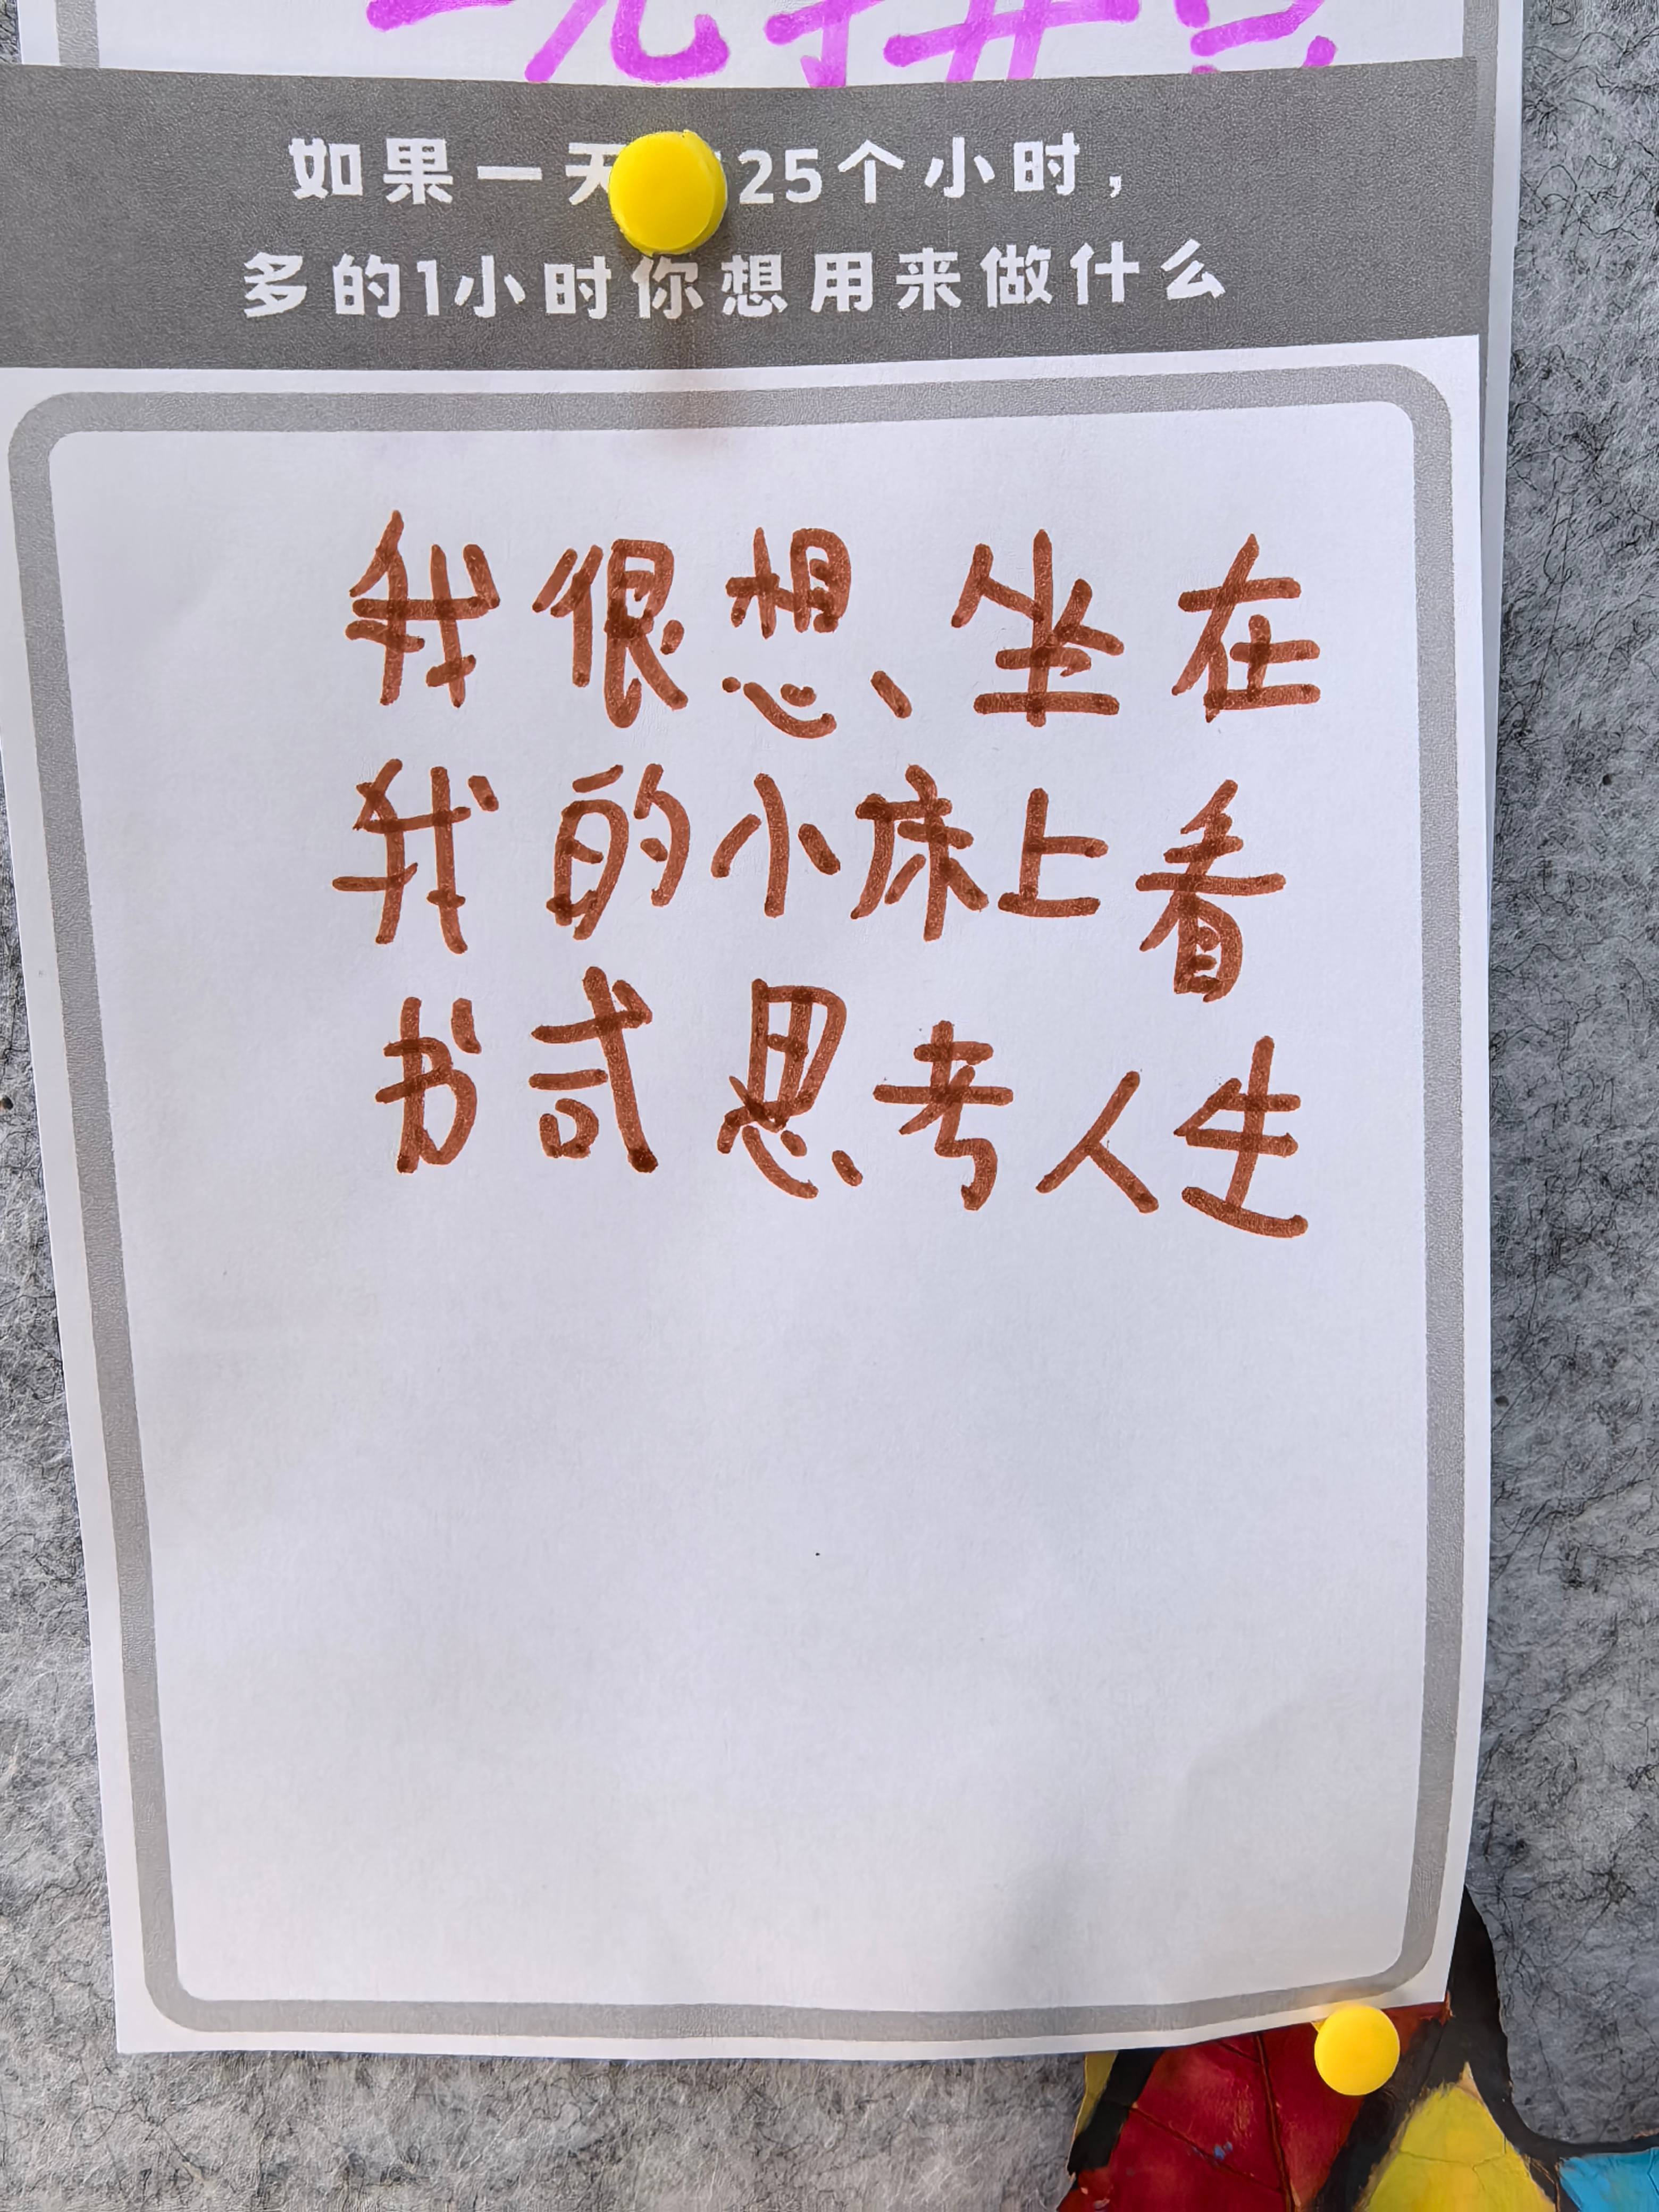 如果一天25个小时，
多的1小时你想用来做什么
我很想、坐在
我的小床上看
书或思考人生